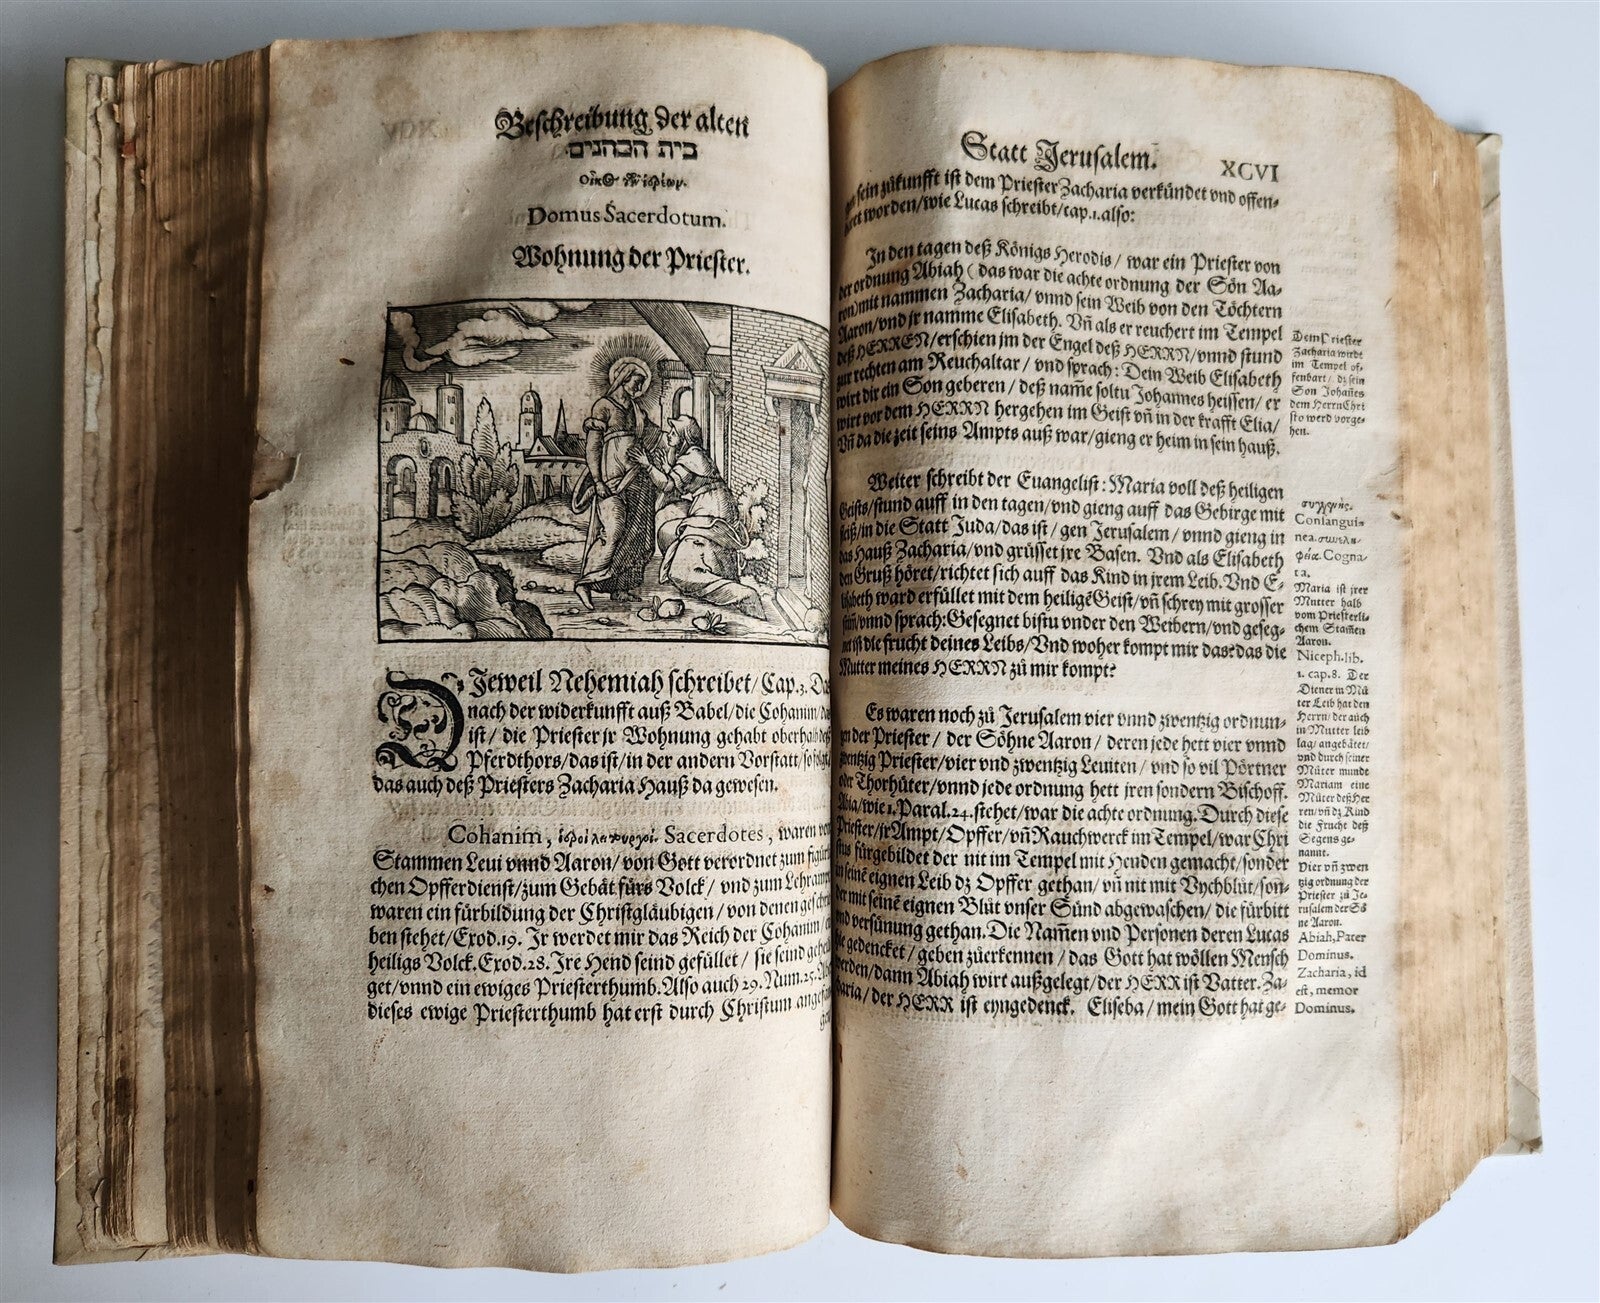 Beschreibung der alten
בית הכהנים
Domus Sacerdotum.
Wohnung der Priester.
DJeweil Nehemiah schreibet/ Cap.3.
nach der widerkunfft auß Babel/die Cohanim/
ist/ die Priester jr Wohnung gehabt oberhalb
Pferdthors/das ist/in der andern Vorstatt/
das auch deß Priesters Zacharia Hauß da gewesen.
Cohanim, Sacerdotes, waren
Stammen Leui vnnd Aaron/von Gott verordnet zum
chen Opfferdienst/zum Gebät fürs Volck/ vnd zum
waren ein fürbildung der Christgläubigen/von denen
ben stehet/Exod.19. Jr werdet mir das Reich der Cohanim/
heiligs Volck. Exod.28. Jre Hend seind gefüllet/ sie seind
get/vnnd ein ewiges Priesterthumb. Also auch 29. Num.25.
dieses ewige Priesterthumb hat erst durch Christum
Statt Jerusalem. XCVI
sein zůkunfft ist dem Priester Zacharia verkündet vnd offen-
worden/wie Lucas schreibt/cap.1.also:
Jn den tagen deß Königs Herodis/ war ein Priester von
der ordnung Abiah (das war die achte ordnung der Sön Aa-
ron) mit nammen Zacharia/ vnnd sein Weib von den Töchtern
Aaron/vnd jr namme Elisabeth. Vñ als er reuchert im Tempel
deß HERREN/erschien jm der Engel deß HERRN/vnnd stund
zur rechten am Reuchaltar/ vnd sprach: Dein Weib Elisabeth
wirt dir ein Son geberen/ deß nam̃e soltu Johannes heissen/ er
wirt vor dem HERRN hergehen im Geist vñ in der krafft Elia/
Vñ da die zeit seins Ampts auß war/gieng er heim in sein hauß.
Dem Priester
Zacharia wirdt
im Tempel of-
fenbart/ dz sein
Son Johañes
dem Herrn Chri
sto werd vorge-
hen.
Weiter schreibt der Euangelist: Maria voll deß heiligen
Geists/stund auff in den tagen/vnd gieng auff das Gebirge mit
fleiß/in die Statt Juda/das ist/ gen Jerusalem/ vnnd gieng in
das Hauß Zacharia/vnd grüsset jre Basen. Vnd als Elisabeth
den Gruß höret/richtet sich auff das Kind in jrem Leib. Vnd E-
lisabeth ward erfüllet mit dem heiligẽ Geist/vñ schrey mit grosser
stim̃/vnnd sprach: Gesegnet bistu vnder den Weibern/vnd geseg-
net ist die frucht deines Leibs/Vnd woher kompt mir das? das die
Mutter meines HERRN zů mir kompt?
Consangui-
nea. Cogna-
ta.
Maria ist jrer
Mutter halb
vom Priesterli-
chem Stam̃en
Aaron.
Niceph. lib.
1. cap. 8. Der
Diener in Mů
ter Leib hat den
Herrn/ der auch
in Mutter leib
lag/ angebätet/
vnd durch seiner
Můter munde
Mariam eine
Můter deß Her
ren/vñ dz Kind
die Frucht deß
Segens ge-
nannt.
Es waren noch zů Jerusalem vier vnnd zwentzig ordnun-
gen der Priester/ der Söhne Aaron/ deren jede hett vier vnnd
zwentzig Priester/vier vnd zwentzig Leuiten/ vnd so vil Pörtner
oder Thorhüter/vnnd jede ordnung hett jren sondern Bischoff.
Abia/wie 1.Paral.24.stehet/war die achte ordnung. Durch diese
Priester/jr Ampt/Opffer/vñ Rauchwerck im Tempel/war Chri
stus fürgebildet der nit im Tempel mit Henden gemacht/sonder
in seinẽ eignen Leib dz Opffer gethan/vñ nit mit Vychblůt/son-
der mit seinẽ eignen Blůt vnser Sünd abgewaschen/ die fürbitt
vnd versünung gethan. Die Nam̃en vnd Personen deren Lucas
hie gedencket/ geben zůerkennen/ das Gott hat wöllen Mensch
werden/dann Abiah wirt außgelegt/der HERR ist Vatter. Za-
charia/der HERR ist eyngedenck. Eliseba/ mein Gott hat ge-
Vier vñ zwen
tzig ordnung der
Priester zů Je-
rusalem der Sö
ne Aaron.
Abiah, Pater
Dominus.
Zacharia, id
est, memor
Dominus.